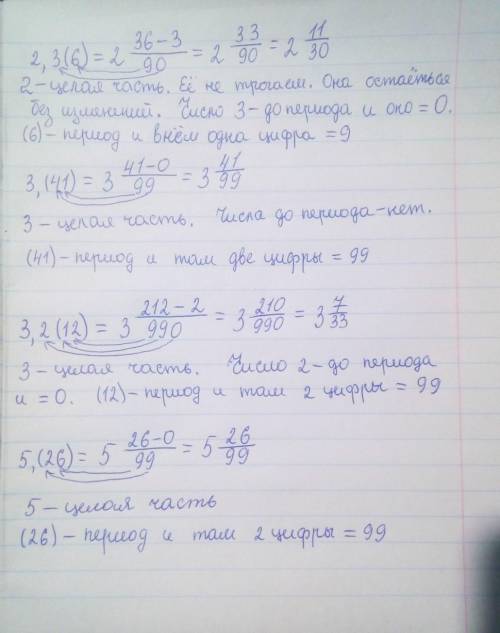 2,3(6) = 2 36-3/90 = 2 33/90 = 2 11/30
2-целая часть. Её не трогаем. Она остаёться
без изменений. Число 3-до периода и оно = 0.
(6)-период и внём одна цифра = 9
3,(41) = 3 41-0/99 = 3 41/99
3 - целая часть. Числа до периода-нет.
(41)-период и там две цифры = 99
3,2(12) = 3 212-2/990 = 3 210/990 = 3 7/33
3-целая часть. Число 2-до периода
и = 0. (12)-период и там 2 цифры = 99
5,(26) = 5 26-0/99 = 5 26/99
5 - целая часть
(26) - период и там 2 цифры = 99